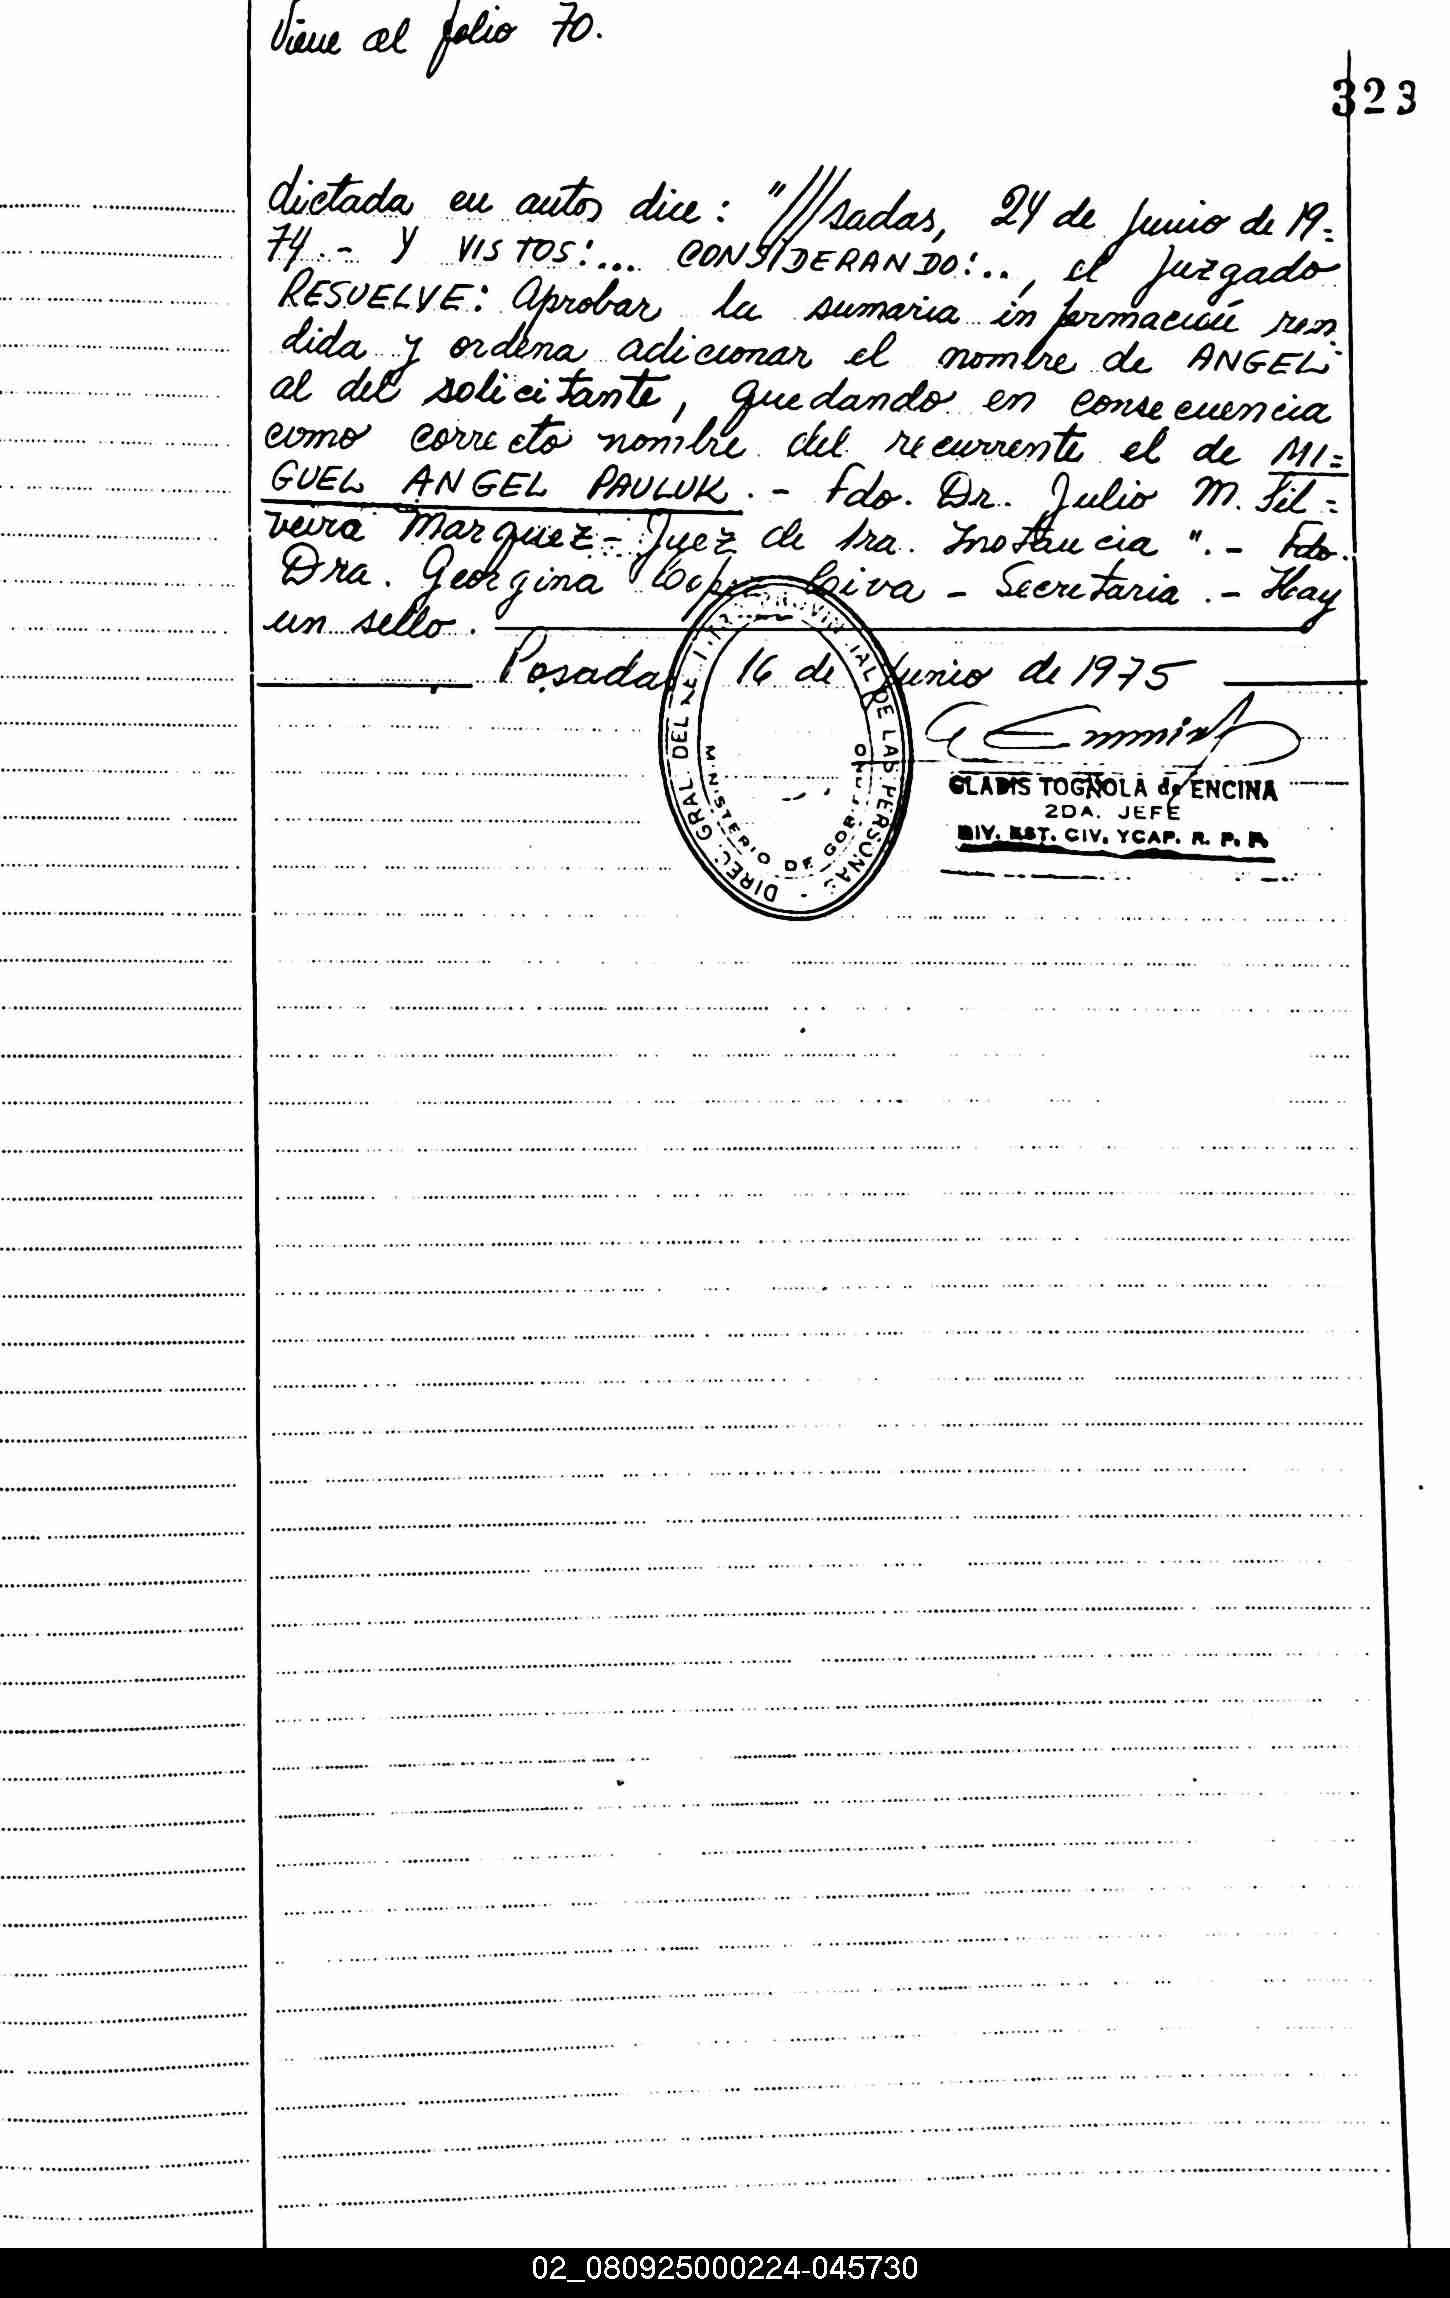 Viene al folio 70.
323
dictada en autos dice: "///sadas, 24 de Junio de 19=
74.- Y VISTOS:... CONSIDERANDO:.., el Juzgado
RESUELVE: Aprobar la sumaria información ren
dida y ordena adicionar el nombre de ANGEL
al del solicitante, quedando en consecuencia
como correcto nombre del recurrente el de MI=
GUEL ANGEL PAULUK.- Fdo. Dr. Julio M. Sil=
veira Marquez- Juez de 1ra. Instancia".- Fdo.
Dra. Georgina Lopez Liva - Secretaria.- Hay
un sello.
Posadas 16 de Junio de 1975
DIREC. GRAL DEL PROVINCIAL DE LAS PERSONAS
MINISTERIO DE GOBIERNO
GLADIS TOGNOLA de ENCINA
2DA. JEFE
DIV. EST. CIV. YCAP. R. P. P.
02_080925000224-045730